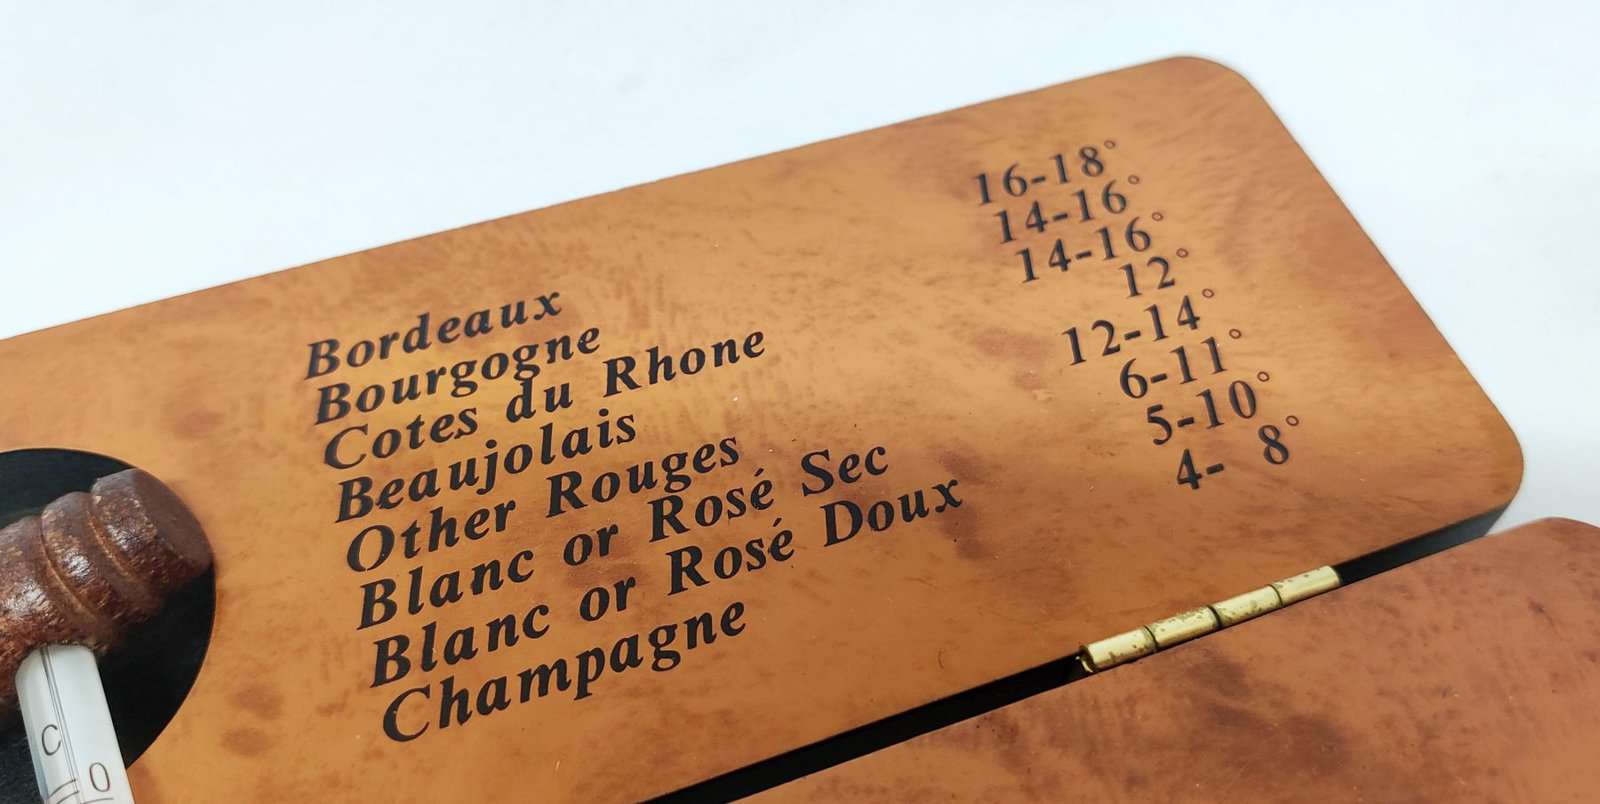 Bordeaux 16-18°
Bourgogne 14-16°
Cotes du Rhone 14-16°
Beaujolais 12°
Other Rouges 12-14°
Blanc or Rosé Sec 6-11°
Blanc or Rosé Doux 5-10°
Champagne 4- 8°
C
0